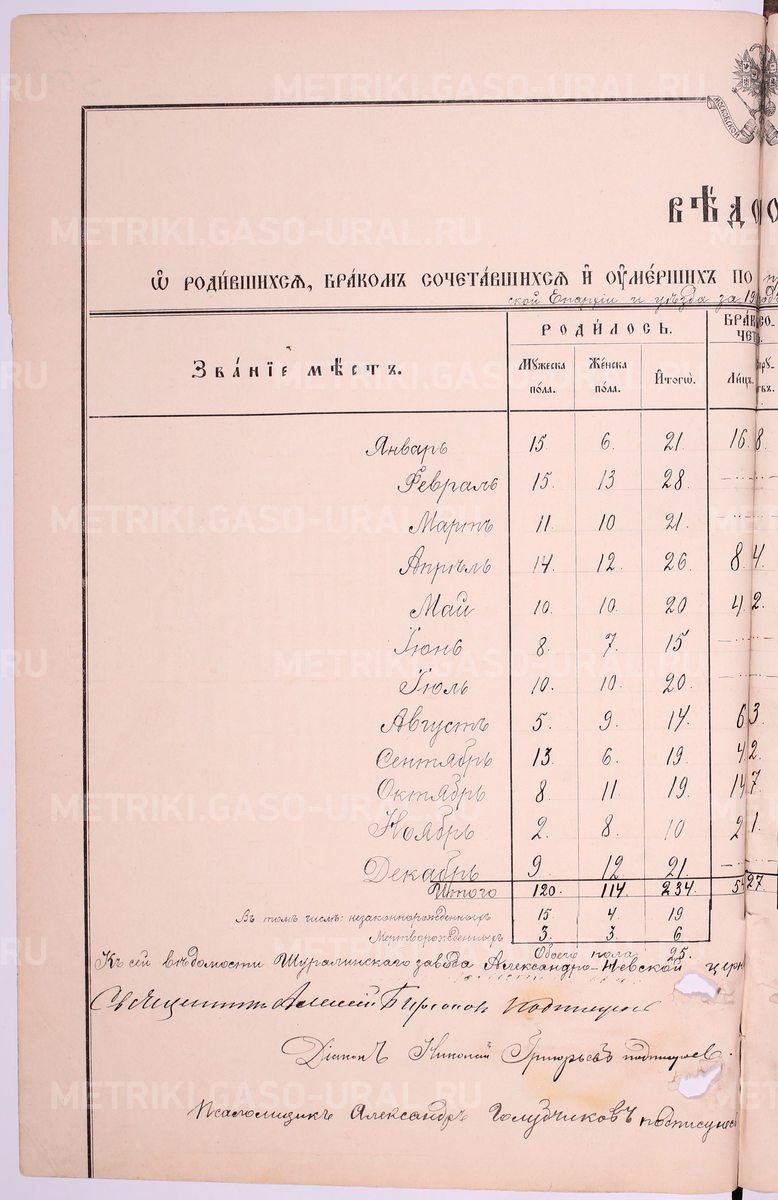 МОСКОВСКОЙ
ВѢДО
Ѡ РОДИ́ВШИХСѦ, БРА́КОМЪ СОЧЕТА́ВШИХСѦ И҆ ОУ҆МЕ́РШИХЪ ПО
ской Епархіи и уѣзда за 19
ЗВА́НІЕ МѢ́СТЪ.
РОДИ́ЛОСЬ.
МУ́ЖЕСКА ПО́ЛА.
ЖЕ́НСКА ПО́ЛА.
И҆ТОГѠ̀.
БРАК СО-
ЧЕТ
ЛИ́ЦЪ.
Январь 15. 6. 21 16. 8.
Февраль 15. 13 28.
Мартъ 11. 10 21.
Апрѣль 14. 12. 26. 8. 4.
Май 10. 10. 20 4. 2.
Іюнь 8. 7. 15
Іюль 10. 10. 20.
Августъ 5. 9. 14. 6 3.
Сентябрь 13. 6. 19 4. 2.
Октябрь 8. 11. 19. 14 7.
Ноябрь 2. 8. 10 2 1.
Декабрь 9 12. 21.
Итого 120. 114. 234. 54 27.
Въ томъ числѣ: незаконнорожденныхъ 15 4. 19
Мертворожденныхъ 3. 3. 6
Обоего пола 25.
Къ сей вѣдомости Шуралинскаго завода Александро-Невской церк
Священникъ Алексій подписуюсь
Діаконъ Николай Григорьевъ подписуюсь.
Псаломщикъ Александръ Голубчиковъ подписуюсь
METRIKI.GASO-URAL.RU